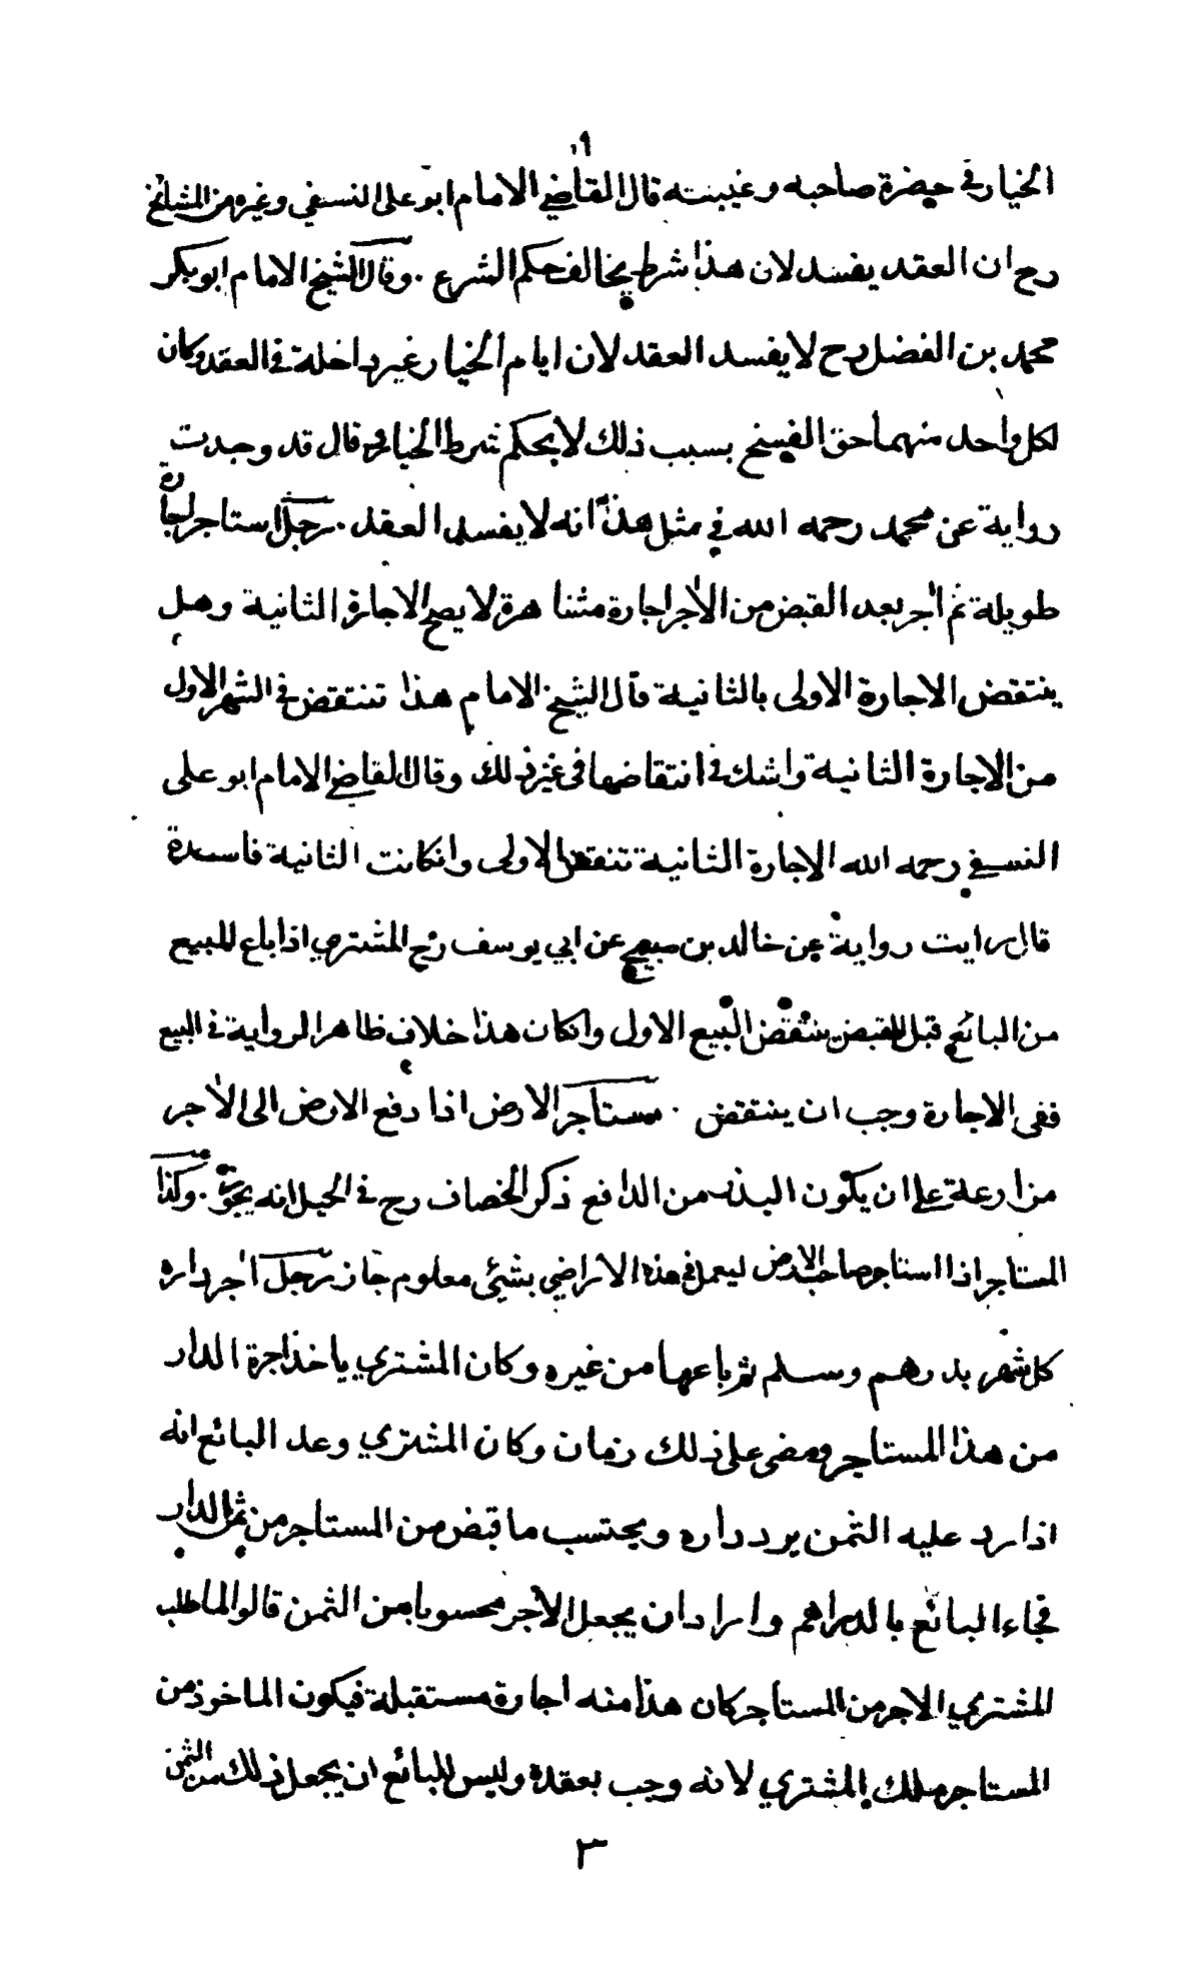 ٩
الخيار في حضرة صاحبه وغيبته قال القاضي الامام ابو على النسفي وغيره من المشائخ
رح ان العقد يفسد لان هذا شرط يخالف حكم الشرع . وقال الشيخ الامام ابو بكر
محمد بن الفضل رح لا يفسد العقد لان ايام الخيار غير داخلة في العقد وكان
لكل واحد منهما حق الفسخ بسبب ذلك لا بحكم شرط الخيار قال قد وجدت
رواية عن محمد رحمه الله في مثل هذا انه لا يفسد العقد . رجل استاجر اجارة
طويلة ثم آجر بعد القبض من الآجر اجارة مشاهرة لا يصح الاجارة الثانية وهل
ينتقض الاجارة الاولى بالثانية قال الشيخ الامام هذا تنتقض في الشهر الاول
من الاجارة الثانية واشك في انتقاضها في غير ذلك وقال القاضي الامام ابو على
النسفي رحمه الله الاجارة الثانية تنقض الاولى وانكانت الثانية فاسدة
قال رايت رواية عن خالد بن صبيح عن ابي يوسف رح المشتري اذا باع المبيع
من البائع قبل القبض ينتقض البيع الاول وانكان هذا خلاف ظاهر الرواية في البيع
ففى الاجارة وجب ان ينتقض . مستاجر الارض اذا دفع الارض الى الآجر
مزارعة على ان يكون البذر من الدافع ذكر الخصاف رح في الحيل انه يجوز . وكذا
المستاجر اذا استاجر صاحب الارض ليعمل في هذه الاراضي بشيئ معلوم جاز رجل آجر داره
كل شهر بدرهم وسلم ثم باعها من غيره وكان المشتري ياخذ اجرة الدار
من هذا المستاجر ومضى على ذلك زمان وكان المشتري وعد البائع انه
اذا رد عليه الثمن يرد داره ويحتسب ما قبض من المستاجر من ثمن الدار
فجاء البائع بالدراهم واراد ان يجعل الآجر محسوبا من الثمن قالوا لما طلب
المشتري الاجر من المستاجر كان هذا منه اجارة مستقبلة فيكون الماخوذ من
المستاجر ملك المشتري لانه وجب بعقده وليس للبائع ان يجعل ذلك من الثمن
٣